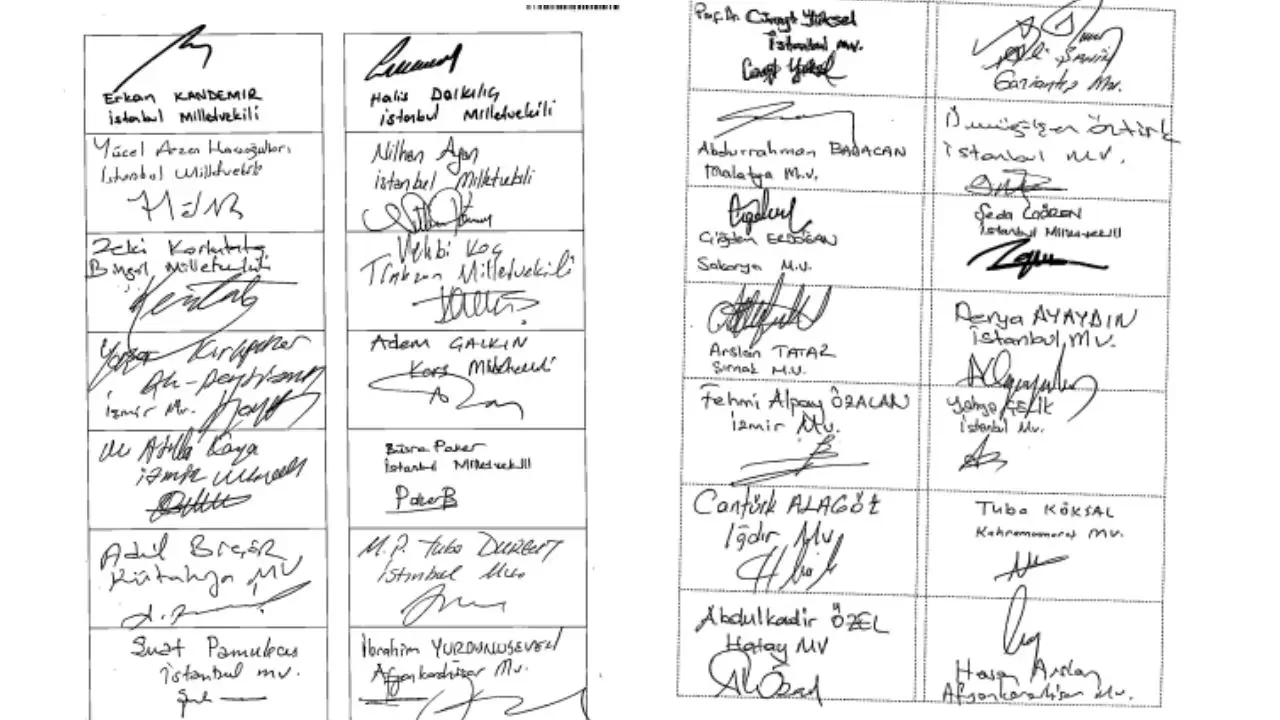 Erkan KANDEMİR
İstanbul Milletvekili
Halis Dalkılıç
İstanbul Milletvekili
Yücel Arzen Hacıoğulları
İstanbul Milletvekili
Nilhan Ayan
İstanbul Milletvekili
Zeki Korkutata
Bingöl Milletvekili
Vehbi Koç
Trabzon Milletvekili
Yaşar Kırkpınar
Ak-Parti
İzmir Mv.
Adem ÇALKIN
Kars Milletvekili
Atilla Kaya
İzmir
Büşra Paker
İstanbul Milletvekili
Paker B
Adil Biçer
Kütahya MV
M. P. Tuba DURGUT
İstanbul
Suat Pamukçu
İstanbul mv.
İbrahim YURDUNUSEVEN
Afyonkarahisar Mv.
Prof. Dr. Cüneyt Yüksel
İstanbul mv.
Cüneyt Yüksel
Ali Şahin
Gaziantep Mv.
Abdurrahman BABACAN
Malatya M.V.
ÖZTÜRK
İstanbul M.V.
Çiğdem ERDOĞAN
Sakarya M.V.
Seda GÖREN
İstanbul Milletvekili
Arslan TATAR
Şırnak M.V.
Derya AYAYDIN
İstanbul Mv.
Fehmi Alpay ÖZALAN
İzmir Mv.
Yahya ÇELİK
İstanbul Mv.
Cantürk ALAGÖZ
Iğdır Mv
Tuba KÖKSAL
Kahramanmaraş MV.
Abdulkadir ÖZEL
Hatay MV
Hasan Arslan
Afyonkarahisar Mv.